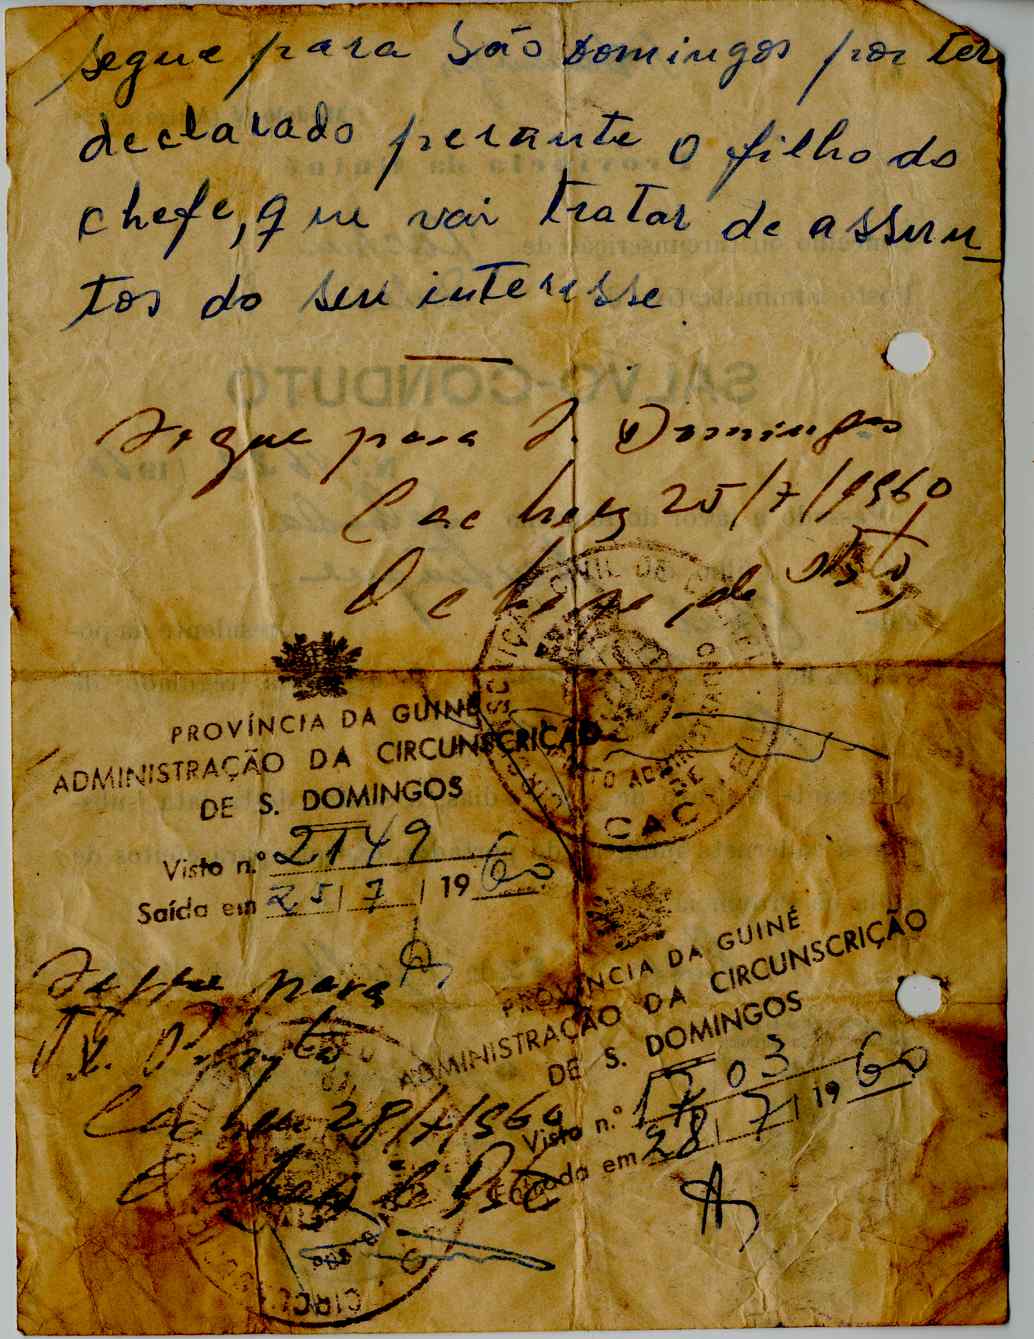 segue para São Domingos por ter
declarado perante o filho do
chefe, que vai tratar de assun-
tos do seu interesse
Segue para S. Domingos
Cacheu 25/7/1960
O chefe de Posto
PROVÍNCIA DA GUINÉ
ADMINISTRAÇÃO DA CIRCUNSCRIÇÃO
DE S. DOMINGOS
Visto n.º 2149
Saída em 25/7/1960
CIVIL DE
ADMINISTRATIVO
DE
CACHEU
PROVÍNCIA DA GUINÉ
ADMINISTRAÇÃO DA CIRCUNSCRIÇÃO
DE S. DOMINGOS
Visto n.º 1703
Entrada em 28/7/1960
Segue para
Cacheu 28/7/1960
O Chefe de Posto
SALVO-CONDUTO